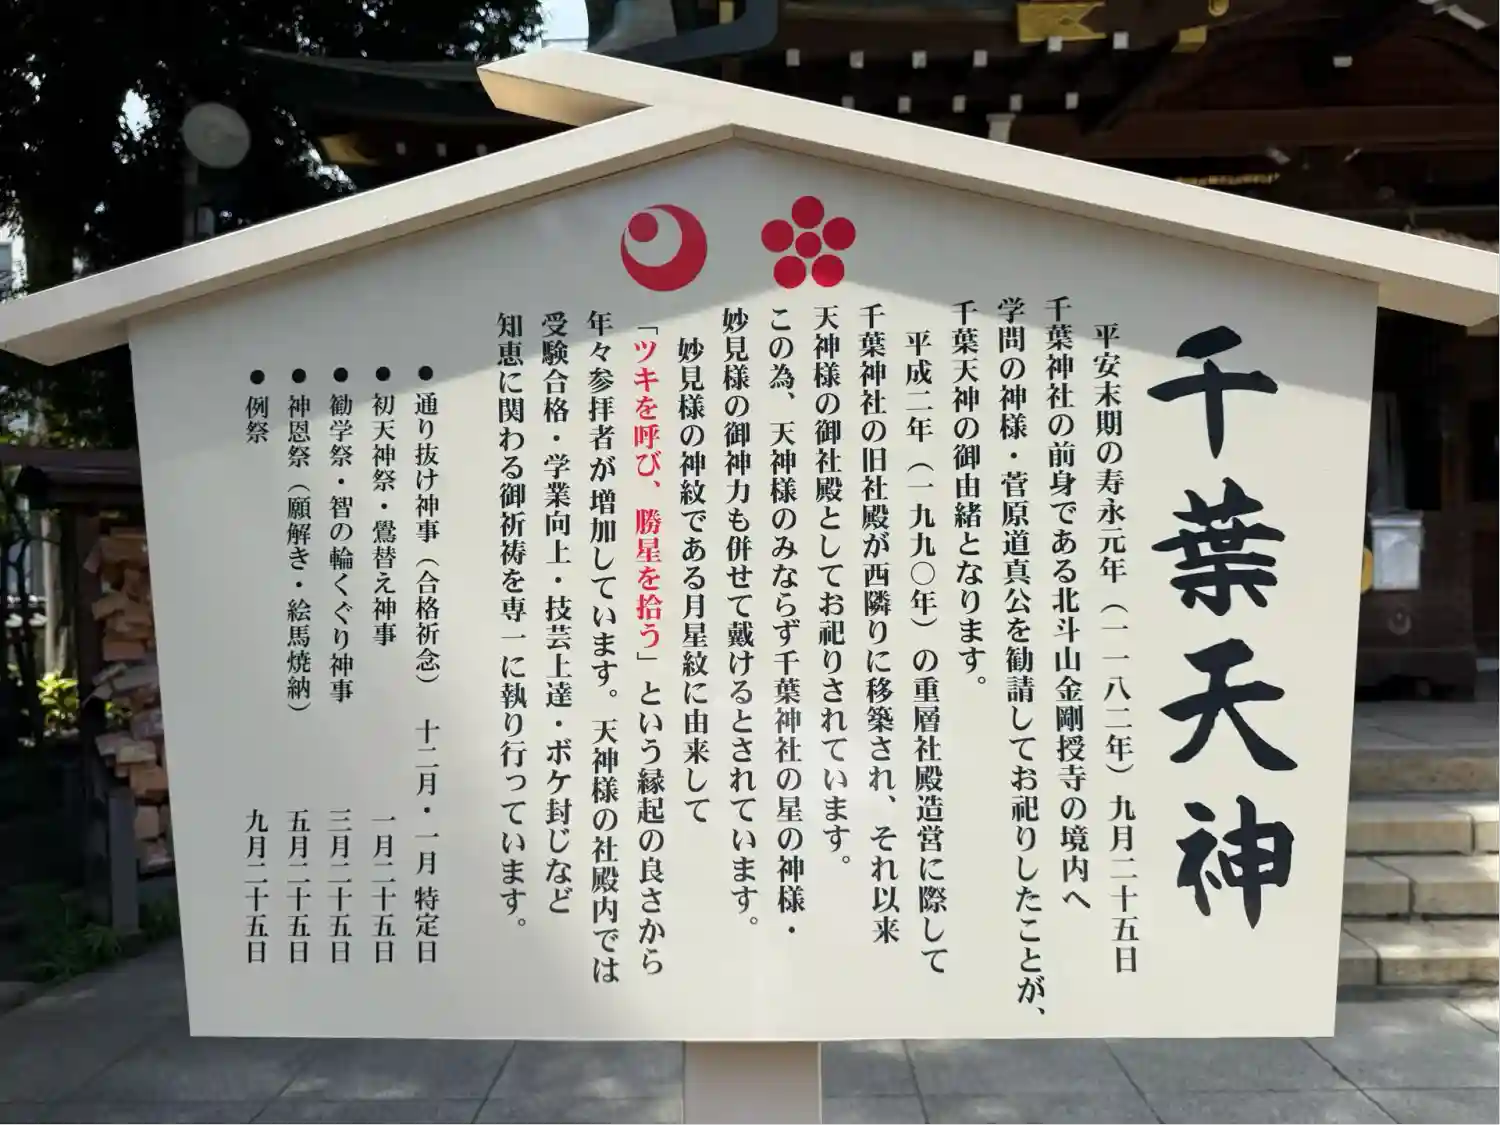 千葉天神
平安末期の寿永元年（一一八二年）九月二十五日
千葉神社の前身である北斗山金剛授寺の境内へ
学問の神様・菅原道真公を勧請してお祀りしたことが、
千葉天神の御由緒となります。
平成二年（一九九〇年）の重層社殿造営に際して
千葉神社の旧社殿が西隣りに移築され、それ以来
天神様の御社殿としてお祀りされています。
この為、天神様のみならず千葉神社の星の神様・
妙見様の御神力も併せて戴けるとされています。
妙見様の神紋である月星紋に由来して
「ツキを呼び、勝星を拾う」という縁起の良さから
年々参拝者が増加しています。天神様の社殿内では
受験合格・学業向上・技芸上達・ボケ封じなど
知恵に関わる御祈祷を専一に執り行っています。
●通り抜け神事（合格祈念）　十二月・一月 特定日
●初天神祭・鷽替え神事　一月二十五日
●勧学祭・智の輪くぐり神事　三月二十五日
●神恩祭（願解き・絵馬焼納）　五月二十五日
●例祭　九月二十五日